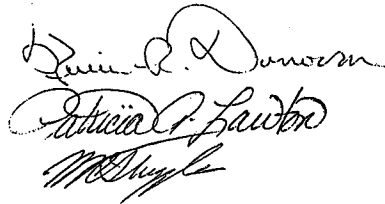 Kevin R. Donovan
Patricia P. Lawton